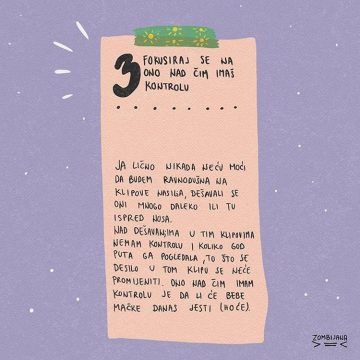 3 FOKUSIRAJ SE NA
ONO NAD ČIM IMAŠ
KONTROLU
JA LIČNO NIKADA NEĆU MOĆI
DA BUDEM RAVNODUŠNA NA
KLIPOVE NASILJA, DEŠAVALI SE
ONI MNOGO DALEKO ILI TU
ISPRED NOSA.
NAD DEŠAVANJIMA U TIM KLIPOVIMA
NEMAM KONTROLU I KOLIKO GOD
PUTA GA POGLEDALA, TO ŠTO SE
DESILO U TOM KLIPU SE NEĆE
PROMIJENITI. ONO NAD ČIM IMAM
KONTROLU JE DA LI ĆE BEBE
MAČKE DANAS JESTI (HOĆE).
ZOMBIJANA